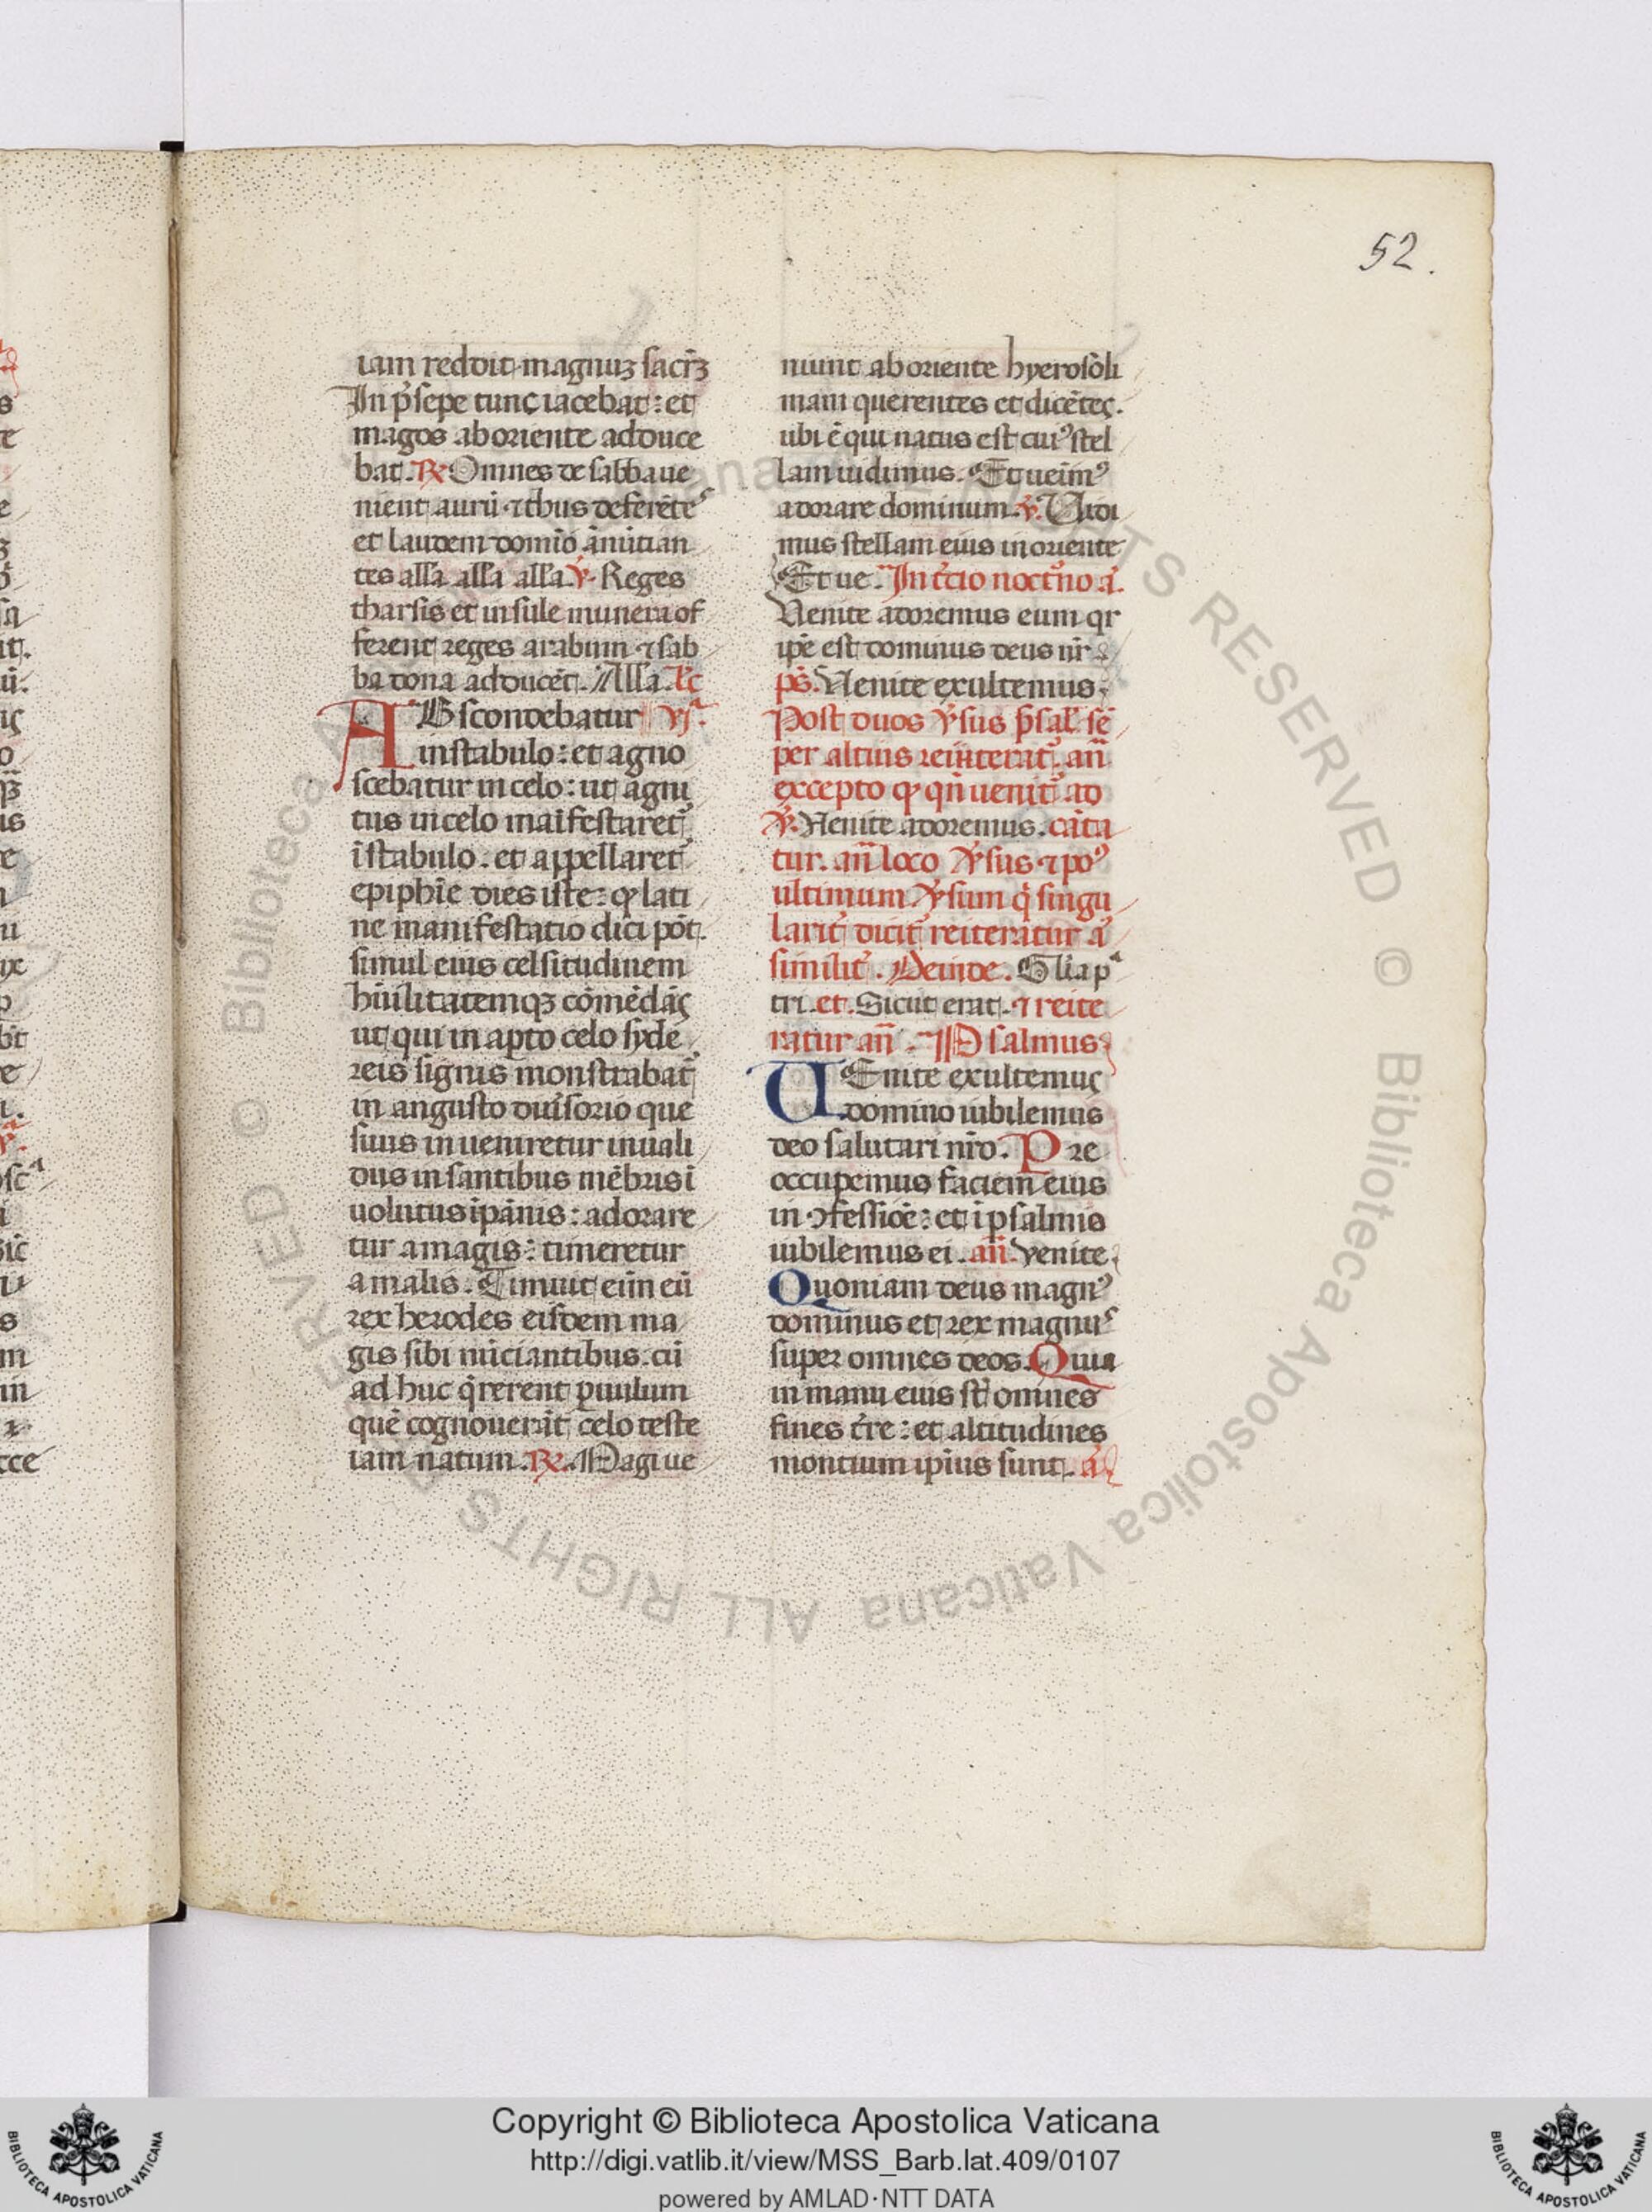 52.
iam reddit. magnuꝫ sacrꝫ
In p̄sepe tunc iacebat: et
magos ab oriente adduce
bat. ℟ Omnes de sabba ue
nient aurū ⁊ thus deferēteˢ
et laudem domīo ānūtian
tes all̄a all̄a all̄a. ℣. Reges
tharsis et insule munera of
ferent reges arabum ⁊ sab
ba dona adducēt. All̄a. lc̄
ABscondebatur vjᵃ.
in stabulo: et agno
scebatur in celo: ut agni
tus in celo maīfestaret᷑
ī stabulo. et appellaret᷑
epiphīe dies iste: ꝙ lati
ne manifestatio dici pōt.
simul eius celsitudinem
hūilitatemqꝫ cōmēdās
ut qui in apto celo syde
reis signis monstrabat᷑
in angusto duīsorio que
situs inueniretur inuali
dus infantibus mēbris ī
uolutus ī pānis: adorare
tur a magis: timeretur
a malis. Timuit eīm eū
rex herodes eisdem ma
gis sibi nūciantibus. cū
ad huc q̄rerent puulum
quē cognouerāt celo teste
iam natum. ℟. Magi ue
niunt ab oriente hyerosoli
mam querentes et dicētes.
ubi ē qui natus est cuiꝰ stel
lam uidimus. Et ueīmꝰ
adorare dominum. ℣. Vidi
mus stellam eius in oriente
Et ue. In t̄cio noct᷑no a᷑.
Venite adoremus eum qr
ip̄e est dominus deus nr̄
ps̄. Venite exultemus.
Post duos ℣sus psal̄ sē
per altius reiiterat᷑ an̄
excepto ꝙ qn̄ uenit᷑ ad
℣. Venite adoremus. cāta
tur. an̄ loco ℣sus ⁊ poꝰ
ultimum ℣sum q̄ singu
larit᷑ dicit᷑ reiteratur a᷑
similit᷑. Deinde. Gl̄ia pᵃ
tri. et. Sicut erat. ⁊ reite
ratur an̄. Psalmus
VEnite exultemus
domino iubilemus
deo salutari nr̄o. Pre
occupemus faciem eius
in ↄfessiōe: et ī psalmis
iubilemus ei. an̄. Venite.
Quoniam deus magnꝰ
dominus et rex magnuˢ
super omnes deos. Quia
in manu eius st̄ omnes
fines t̄re: et altitudines
montium ipīus sunt. a᷑
© Biblioteca Apostolica Vaticana ALL RIGHTS RESERVED
Copyright © Biblioteca Apostolica Vaticana
http://digi.vatlib.it/view/MSS_Barb.lat.409/0107
powered by AMLAD·NTT DATA
BIBLIOTECA APOSTOLICA VATICANA
BIBLIOTECA APOSTOLICA VATICANA